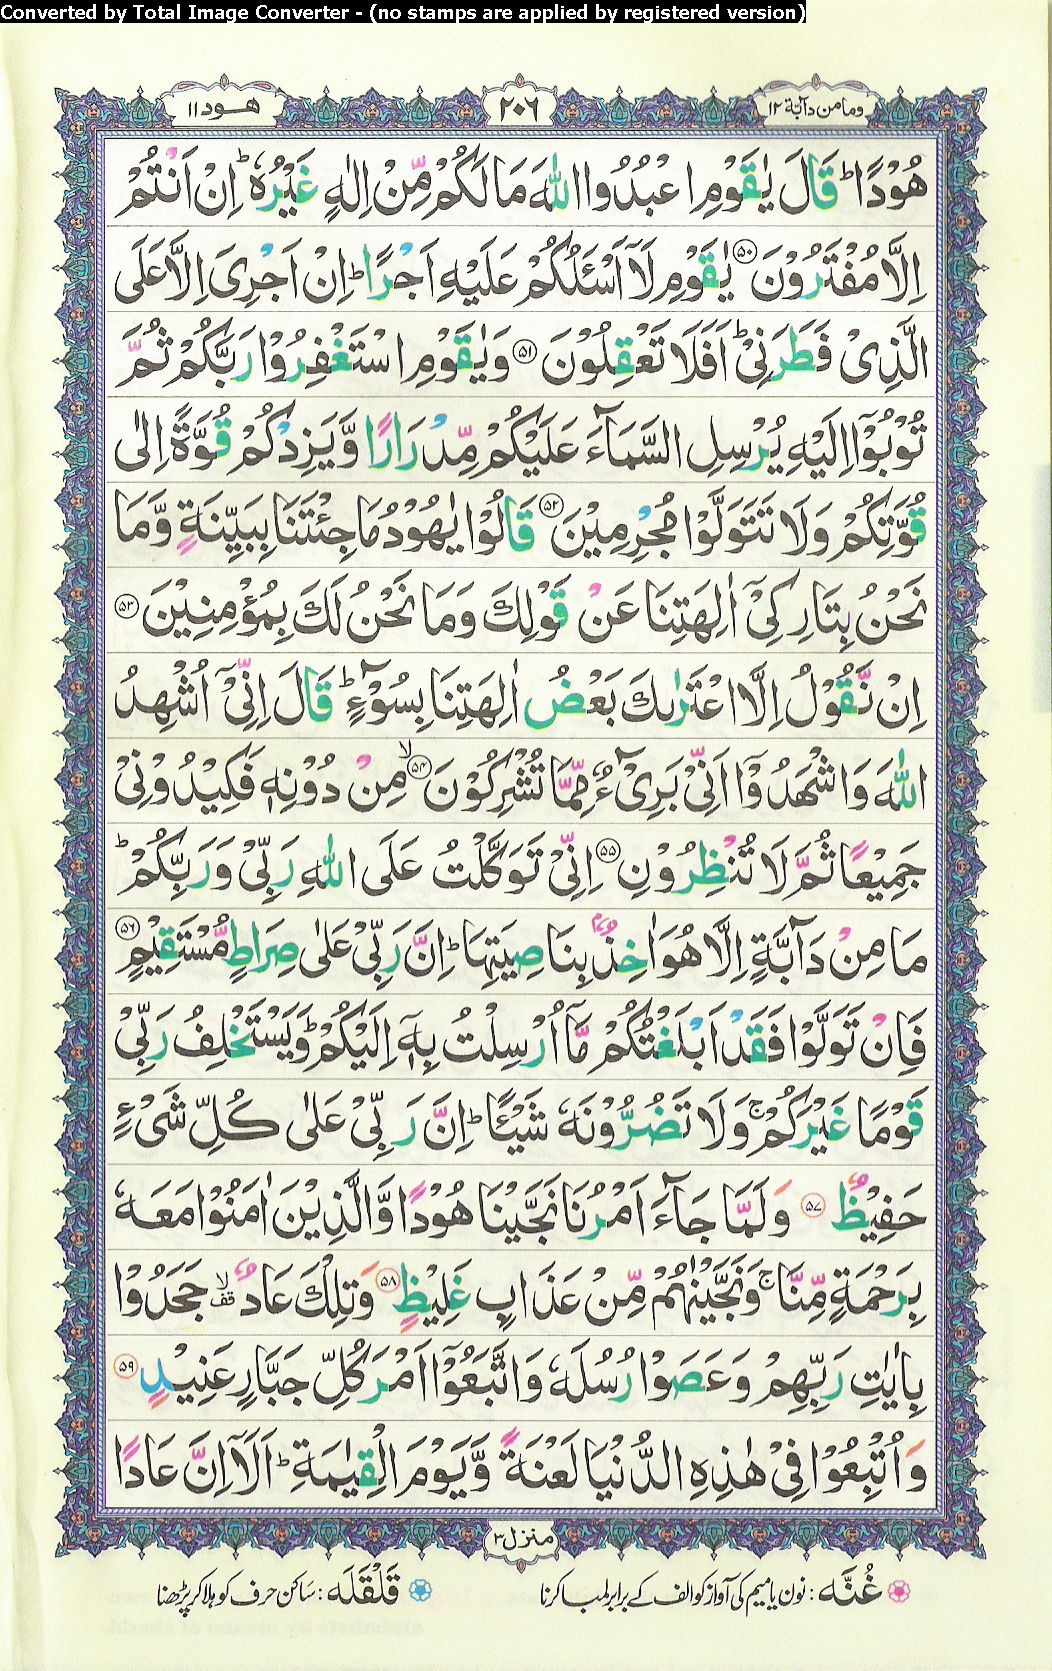 Converted by Total Image Converter - (no stamps are applied by registered version)
ومامن دآبة ١٢
٢٠٦
هود ١١
هُوْدًا ؕ قَالَ يٰقَوْمِ اعْبُدُوا اللّٰهَ مَا لَكُمْ مِّنْ اِلٰهٍ غَيْرُهٗ ؕ اِنْ اَنْتُمْ
اِلَّا مُفْتَرُوْنَ ﴿۵۰﴾ يٰقَوْمِ لَاۤ اَسْـَٔلُكُمْ عَلَيْهِ اَجْرًا ؕ اِنْ اَجْرِىَ اِلَّا عَلَى
الَّذِىْ فَطَرَنِىْ ؕ اَفَلَا تَعْقِلُوْنَ ﴿۵۱﴾ وَيٰقَوْمِ اسْتَغْفِرُوْا رَبَّكُمْ ثُمَّ
تُوْبُوْۤا اِلَيْهِ يُرْسِلِ السَّمَآءَ عَلَيْكُمْ مِّدْرَارًا وَّيَزِدْكُمْ قُوَّةً اِلٰى
قُوَّتِكُمْ وَلَا تَتَوَلَّوْا مُجْرِمِيْنَ ﴿۵۲﴾ قَالُوْا يٰهُوْدُ مَا جِئْتَنَا بِبَيِّنَةٍ وَّمَا
نَحْنُ بِتَارِكِىْۤ اٰلِهَتِنَا عَنْ قَوْلِكَ وَمَا نَحْنُ لَكَ بِمُؤْمِنِيْنَ ﴿۵۳﴾
اِنْ نَّقُوْلُ اِلَّا اعْتَرٰٮكَ بَعْضُ اٰلِهَتِنَا بِسُوْٓءٍ ؕ قَالَ اِنِّىْۤ اُشْهِدُ
اللّٰهَ وَاشْهَدُوْۤا اَنِّىْ بَرِىْٓءٌ مِّمَّا تُشْرِكُوْنَ ﴿۵۴﴾ۙ مِنْ دُوْنِهٖ فَكِيْدُوْنِىْ
جَمِيْعًا ثُمَّ لَا تُنْظِرُوْنِ ﴿۵۵﴾ اِنِّىْ تَوَكَّلْتُ عَلَى اللّٰهِ رَبِّىْ وَرَبِّكُمْ ؕ
مَا مِنْ دَآبَّةٍ اِلَّا هُوَ اٰخِذٌۢ بِنَاصِيَتِهَا ؕ اِنَّ رَبِّىْ عَلٰى صِرَاطٍ مُّسْتَقِيْمٍ ﴿۵۶﴾
فَاِنْ تَوَلَّوْا فَقَدْ اَبْلَغْتُكُمْ مَّاۤ اُرْسِلْتُ بِهٖۤ اِلَيْكُمْ ؕ وَيَسْتَخْلِفُ رَبِّىْ
قَوْمًا غَيْرَكُمْ ۚ وَلَا تَضُرُّوْنَهٗ شَيْئًا ؕ اِنَّ رَبِّىْ عَلٰى كُلِّ شَىْءٍ
حَفِيْظٌ ﴿۵۷﴾ وَلَمَّا جَآءَ اَمْرُنَا نَجَّيْنَا هُوْدًا وَّالَّذِيْنَ اٰمَنُوْا مَعَهٗ
بِرَحْمَةٍ مِّنَّا ۚ وَنَجَّيْنٰهُمْ مِّنْ عَذَابٍ غَلِيْظٍ ﴿۵۸﴾ وَتِلْكَ عَادٌ ۙ قف جَحَدُوْا
بِاٰيٰتِ رَبِّهِمْ وَعَصَوْا رُسُلَهٗ وَاتَّبَعُوْۤا اَمْرَ كُلِّ جَبَّارٍ عَنِيْدٍ ﴿۵۹﴾
وَاُتْبِعُوْا فِىْ هٰذِهِ الدُّنْيَا لَعْنَةً وَّيَوْمَ الْقِيٰمَةِ ؕ اَلَاۤ اِنَّ عَادًا
منزل ٣
غُنَّه : نون یا میم کی آواز کو الف کے برابر لمبا کرنا
قَلْقَلَه : ساکن حرف کو ہلا کر پڑھنا